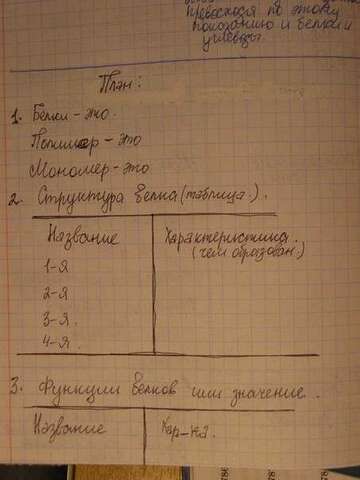 превосходя по этому
показанию и белки и
углеводы.
План:
1. Белки - это.
Полимер - это
Мономер - это
2. Структура белка (таблица.).
Название
Характеристика.
(чем образован.)
1-я
2-я
3-я.
4-я.
3. Функции белков или значение.
Название
Хар-ка.